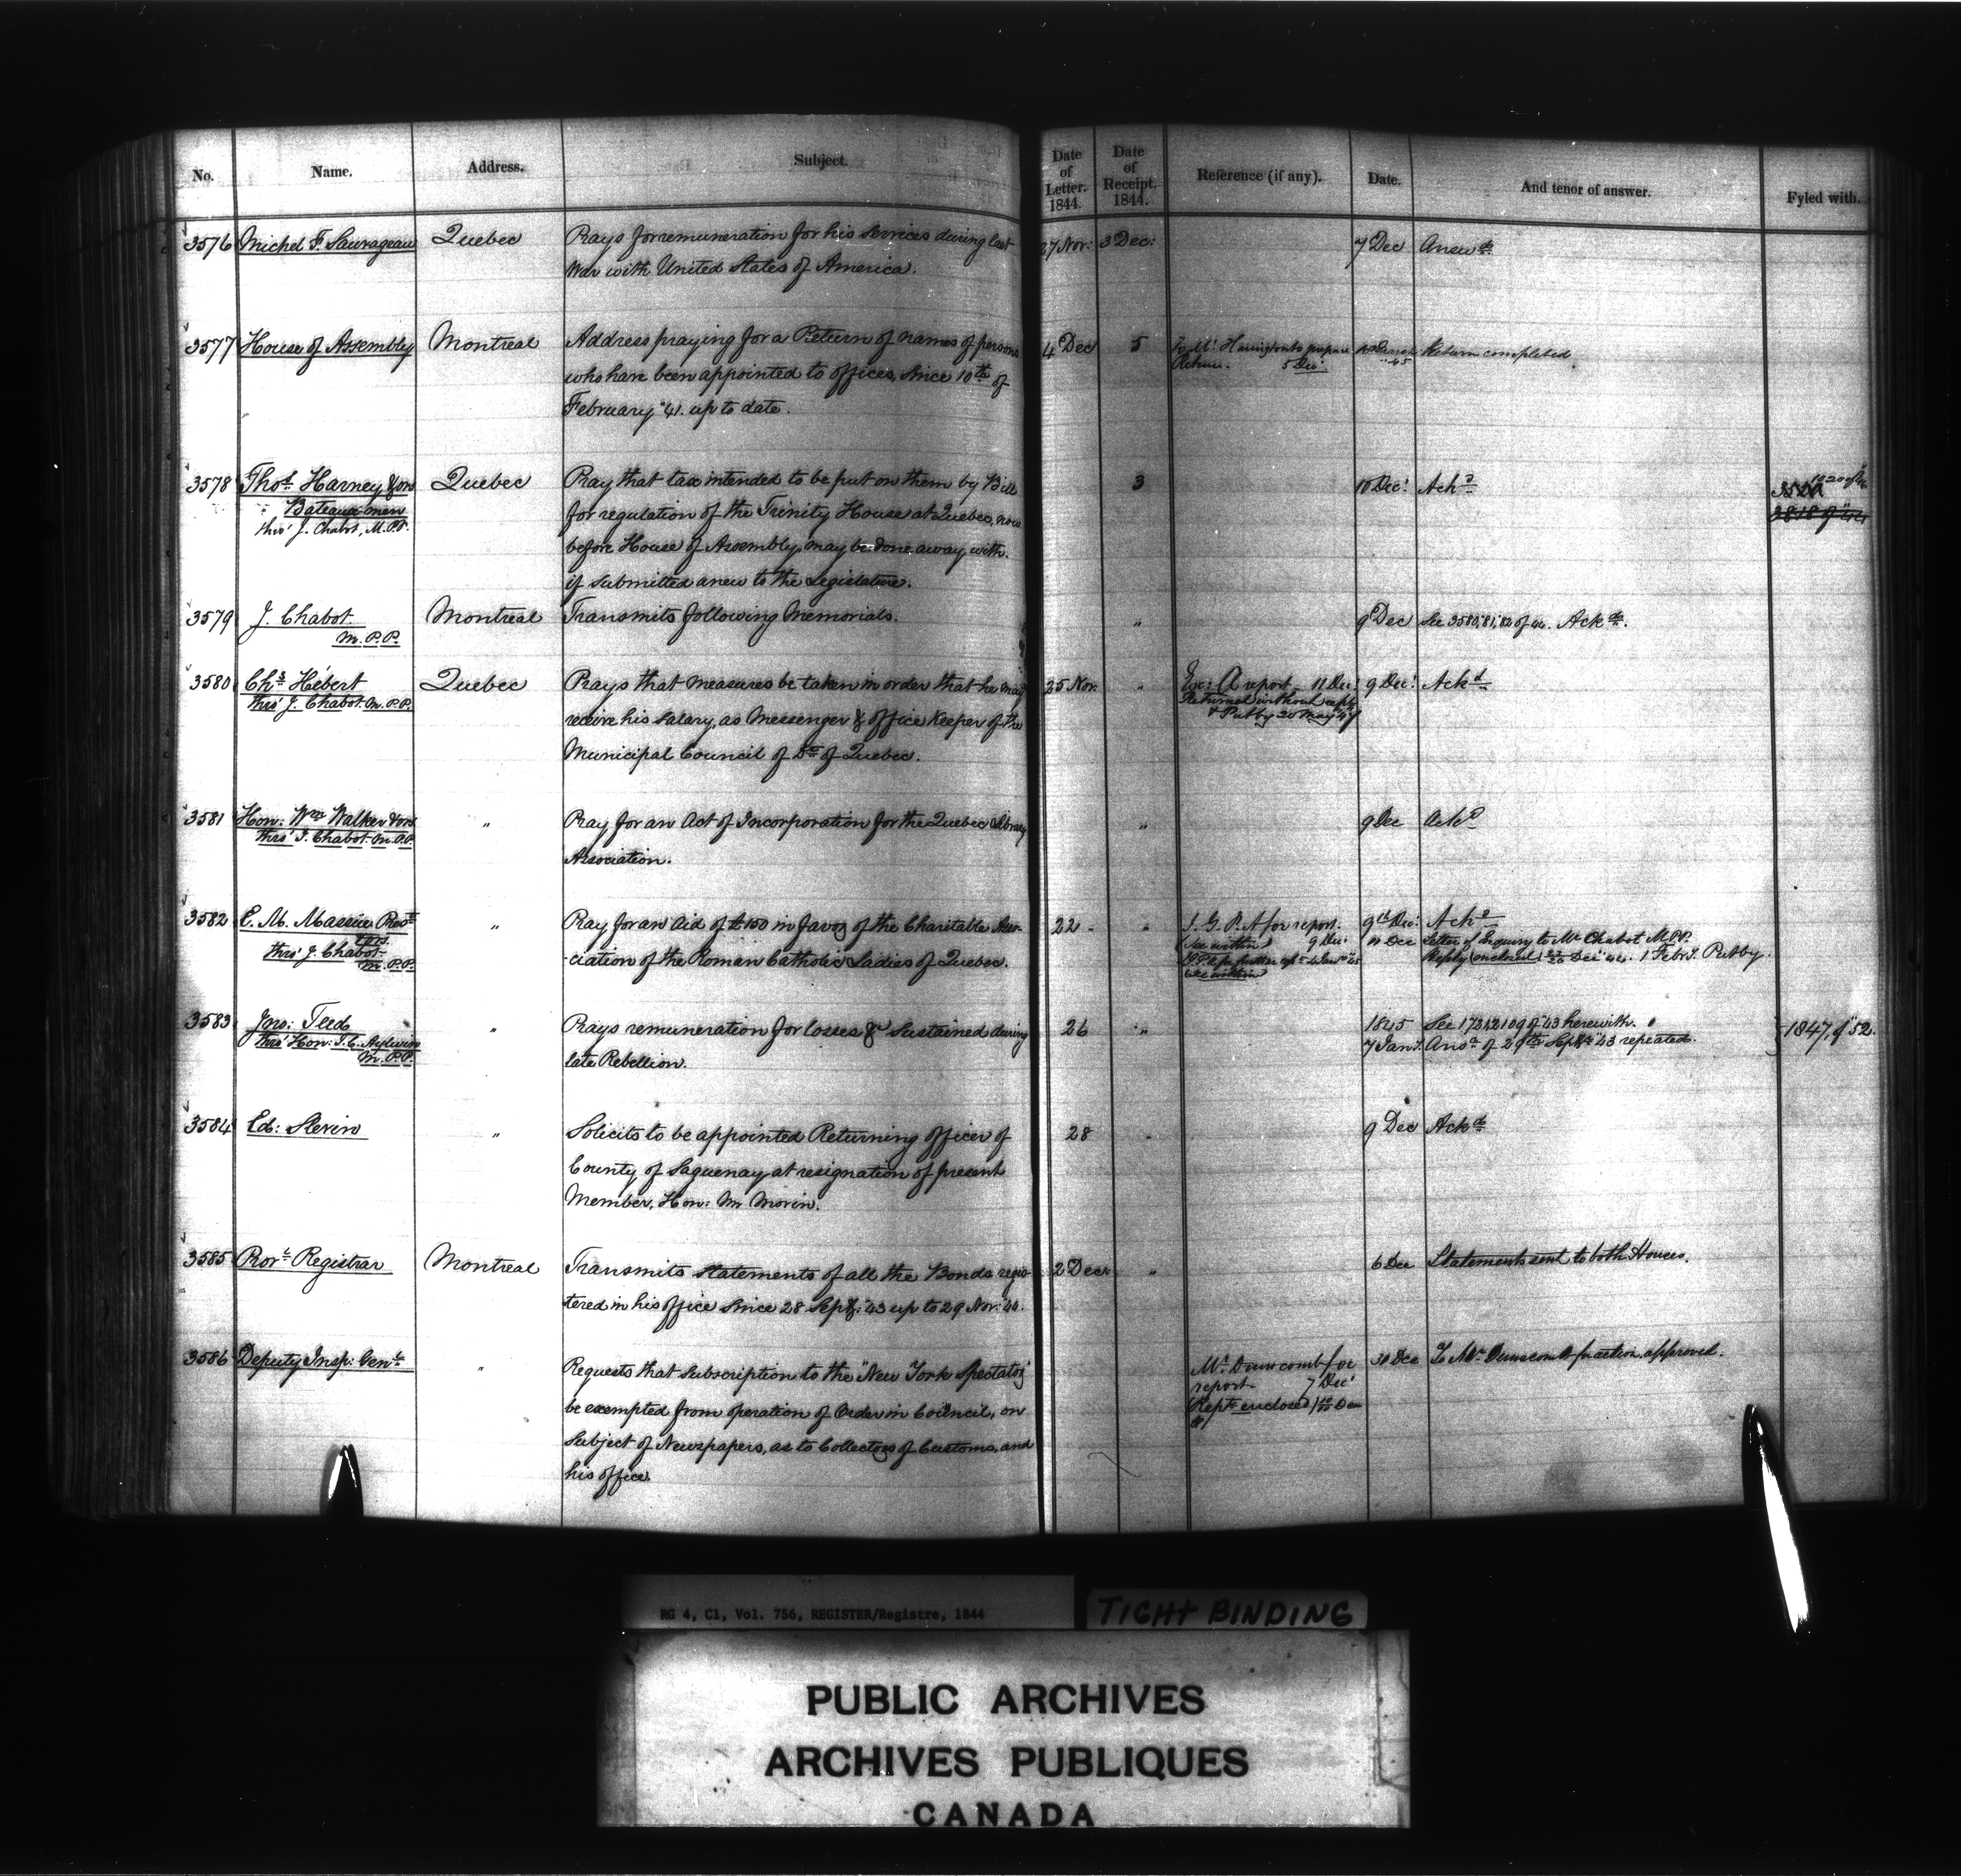 No. Name. Address. Subject. Date of Letter. 1844. Date of Receipt. 1844. Reference (if any). Date. And tenor of answer. Fyled with.
3576 Michel F. Sauvageau Quebec Prays for remuneration for his services during last 27 Nov: 3 Dec: 7 Dec Answd
War with United States of America.
3577 House of Assembly Montreal Address praying for a Return of names of persons 4 Dec 5 Harrington to prepare Return completed
who have been appointed to offices, since 10th of Return. 5 Dec:
February "41. up to date.
3578 Thos Harney & ors Quebec Pray that tax intended to be put on them by Bill 3 10 Dec: Ackd
Bateaux-men for regulation of the Trinity House at Quebec, now
thro' J. Chabot, M.P.P. before House of Assembly, may be done away with.
if submitted anew to the Legislature.
3579 J. Chabot Montreal Transmits following Memorials. " 9 Dec See 3580, 81, 82 of 44. Ackd.
M.P.P.
3580 Chs Hébert Quebec Prays that measures be taken in order that he may 25 Nov. " report 11 Dec: 9 Dec: Ackd
thro' J. Chabot M.P.P. receive his salary, as Messenger & office Keeper of the Returned without
Municipal Council of Dt of Quebec. 20 May 47
3581 Hon: Wm Walker & ors " Pray for an Act of Incorporation for the Quebec Library " 9 Dec Ackd
thro' J. Chabot M.P.P. Association.
3582 E. M. Massue Prest " Pray for an Aid of £150 in favor of the Charitable Asso- 22 " I. G. P. A for report. 9th Dec: Ackd
& ors. (See within) 9 Dec: 11 Dec Letter of Enquiry to Mr Chabot M.P.P.
thro' J. Chabot -ciation of the Roman Catholic Ladies of Quebec. Reply (enclosed) Dec 44. 1 Feby.
M.P.P. See within
3583 Jno: Teed " Prays remuneration for losses &c sustained during 26 " 1845 See 1731, 2109 of "43 herewith. 1847, of "52.
thro' Hon: T. C. Aylwin late Rebellion. 7 Jany. Ansd of 29th Sept "43 repeated.
M.P.P.
3584 Ed: Slevin " Solicits to be appointed Returning officer of 28 " 9 Dec Ackd
County of Saguenay, at resignation of present
Member, Hon: Mr Morin.
3585 Provl Registrar Montreal Transmits statements of all the Bonds regis- 2 Dec: " 6 Dec Statements sent to both Houses.
tered in his office since 28 Sept: "43 up to 29 Nov: "44.
3586 Deputy Insp: Genl " Requests that Subscription to the "New York Spectator" Mr Dunscomb for 31 Dec To Mr Dunscomb for action, approved.
be exempted from operation of Order in Council, on report 7 Dec:
Subject of Newspapers, as to Collectors of Customs, and Rept enclosed
his office.
RG 4, C1, Vol. 756, REGISTER/Registre, 1844
TIGHT BINDING
PUBLIC ARCHIVES
ARCHIVES PUBLIQUES
CANADA